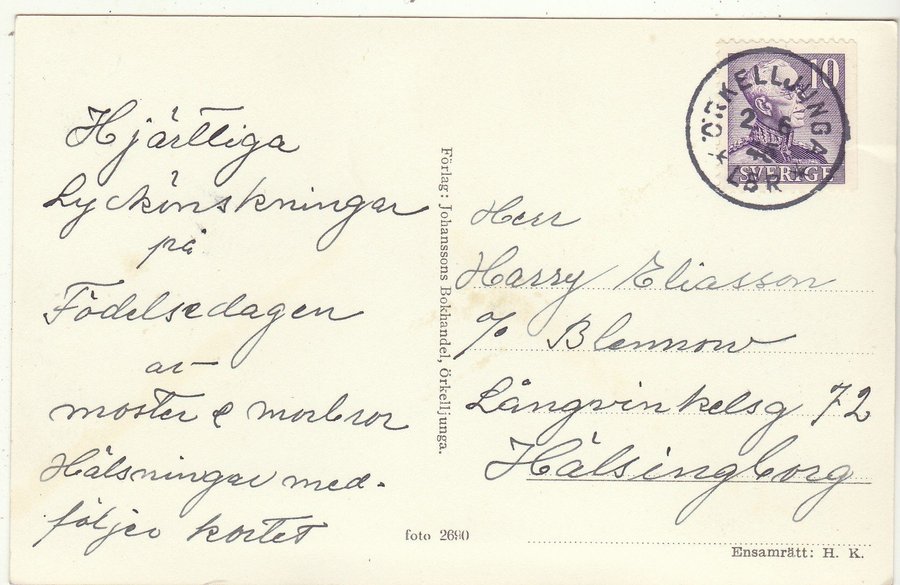 Hjärtliga
Lyckönskningar
på
Födelsedagen
av
moster & morbror
Hälsningar med-
följer kortet
Förlag: Johanssons Bokhandel, Örkelljunga.
foto 2690
10
SVERIGE
ÖRKELLJUNGA
2 6
LBR
Herr
Harry Eliasson
c/o Blennow
Långvinkelsg 72
Hälsingborg
Ensamrätt: H. K.